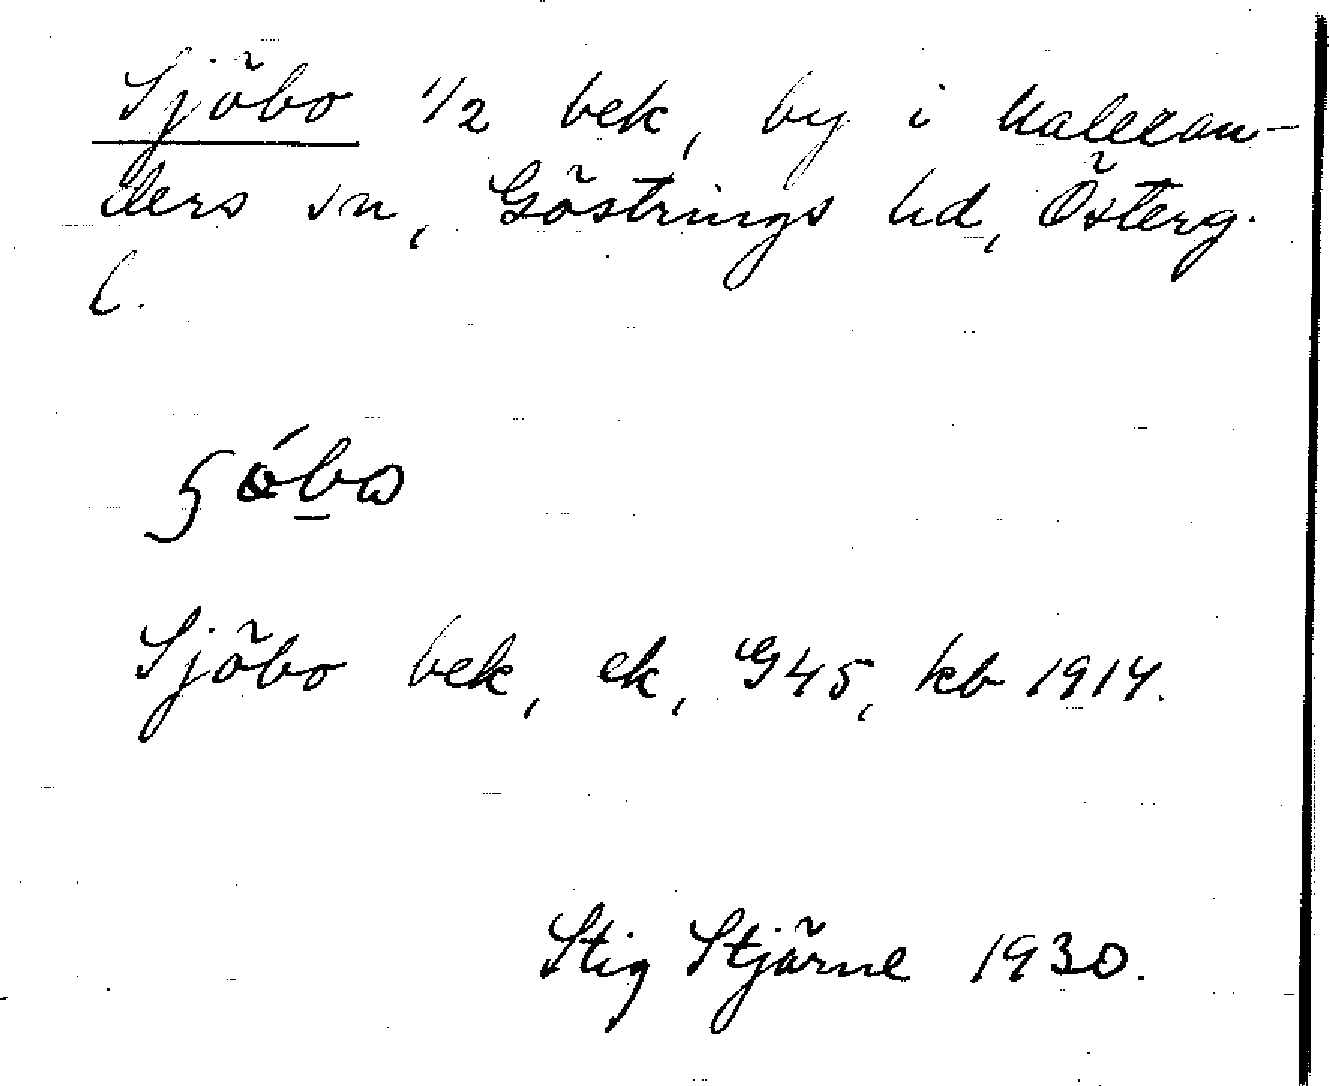 Sjöbo 1/2 bek, by i Malexan-
ders sn, Göstrings hd, Österg.
l.
Sjöbo bek, ek, G45, kb 1914.
Stig Stjärne 1930.